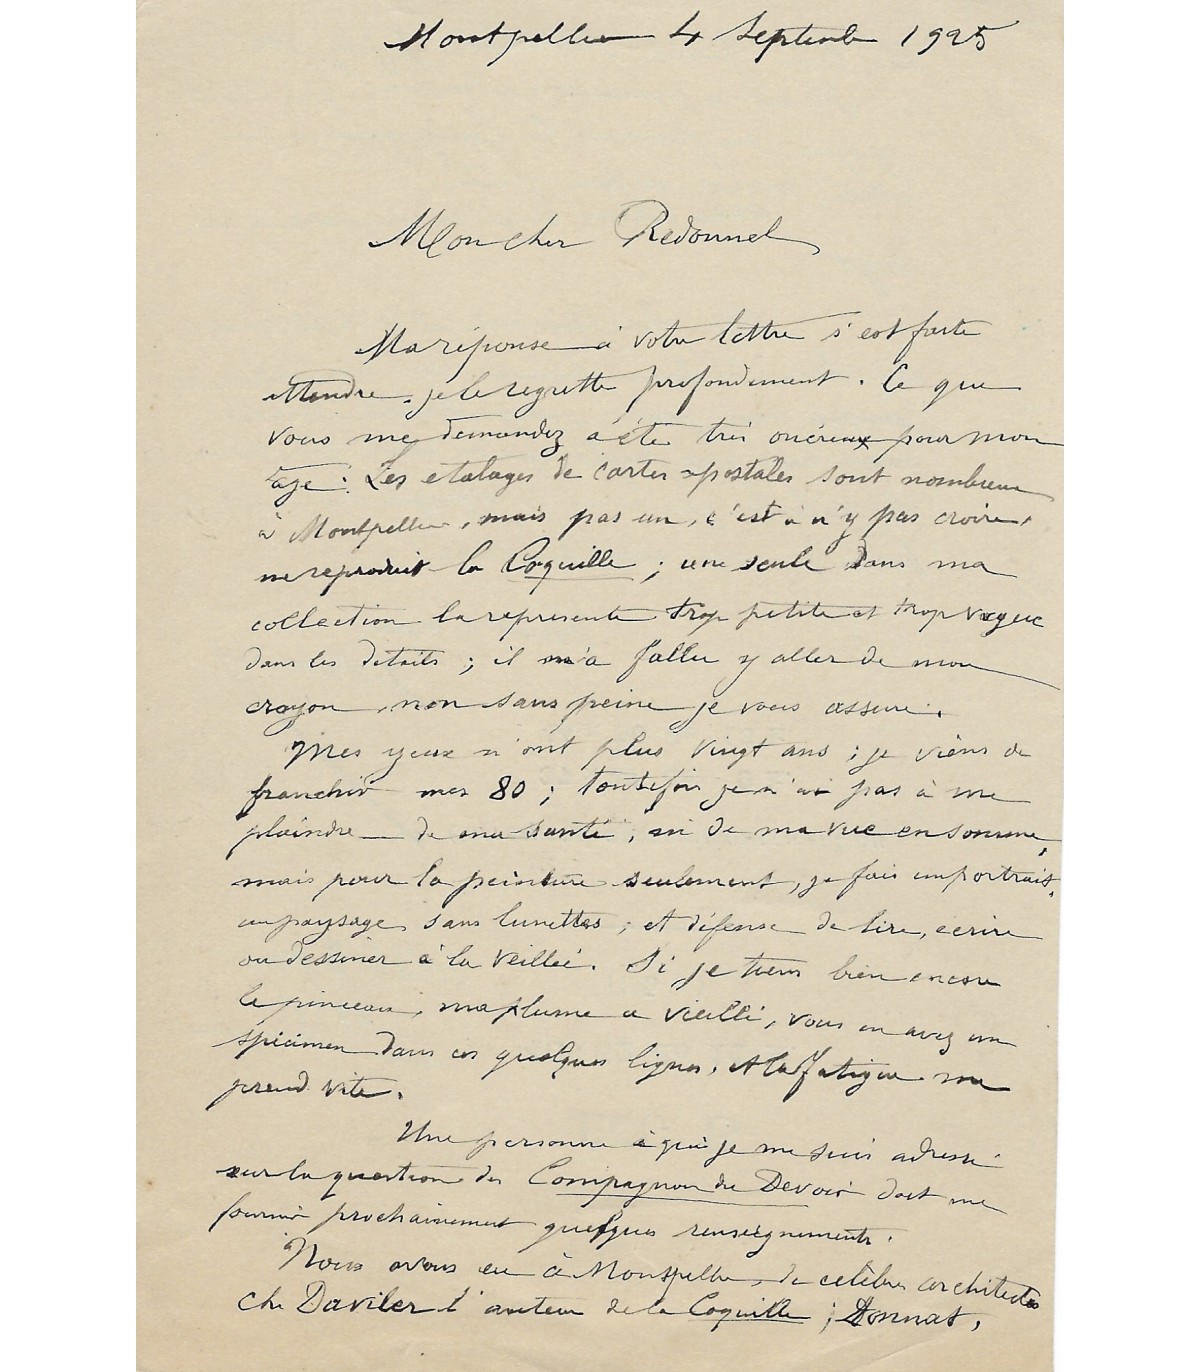 Montpellier 4 Septembre 1925
Mon cher Redonnel
Ma réponse à votre lettre s'est faite
attendre, je le regrette profondement. Ce que
vous me demandez a été très onéreux pour mon
age : Les etalages de cartes-postales sont nombreux
à Montpellier, mais pas un, c'est à n'y pas croire,
ne reproduit la Coquille ; une seule dans ma
collection la represente trop petite et trop vague
dans les détails ; il m'a fallu y aller de mon
crayon, non sans peine je vous assure.
Mes yeux n'ont plus vingt ans ; je viens de
franchir mes 80 ; toutefois je n'ai pas à me
plaindre de ma santé, ni de ma vue en somme,
mais pour la peinture seulement, je fais un portrait,
un paysage sans lunettes ; et défense de lire, écrire
ou dessiner à la veillée. Si je tiens bien encore
le pinceau, ma plume a vieilli, vous en avez un
spécimen dans ces quelques lignes, et la fatigue me
prend vite.
Une personne à qui je me suis adressé
sur la question des Compagnon du Devoir doit me
fournir prochainement quelques renseignements.
Nous avons eu à Montpellier de célèbres architectes
Ch. Daviler l'auteur de la Coquille ; Donnat,